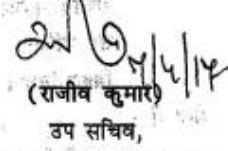 (राजीव कुमार)
उप सचिव,